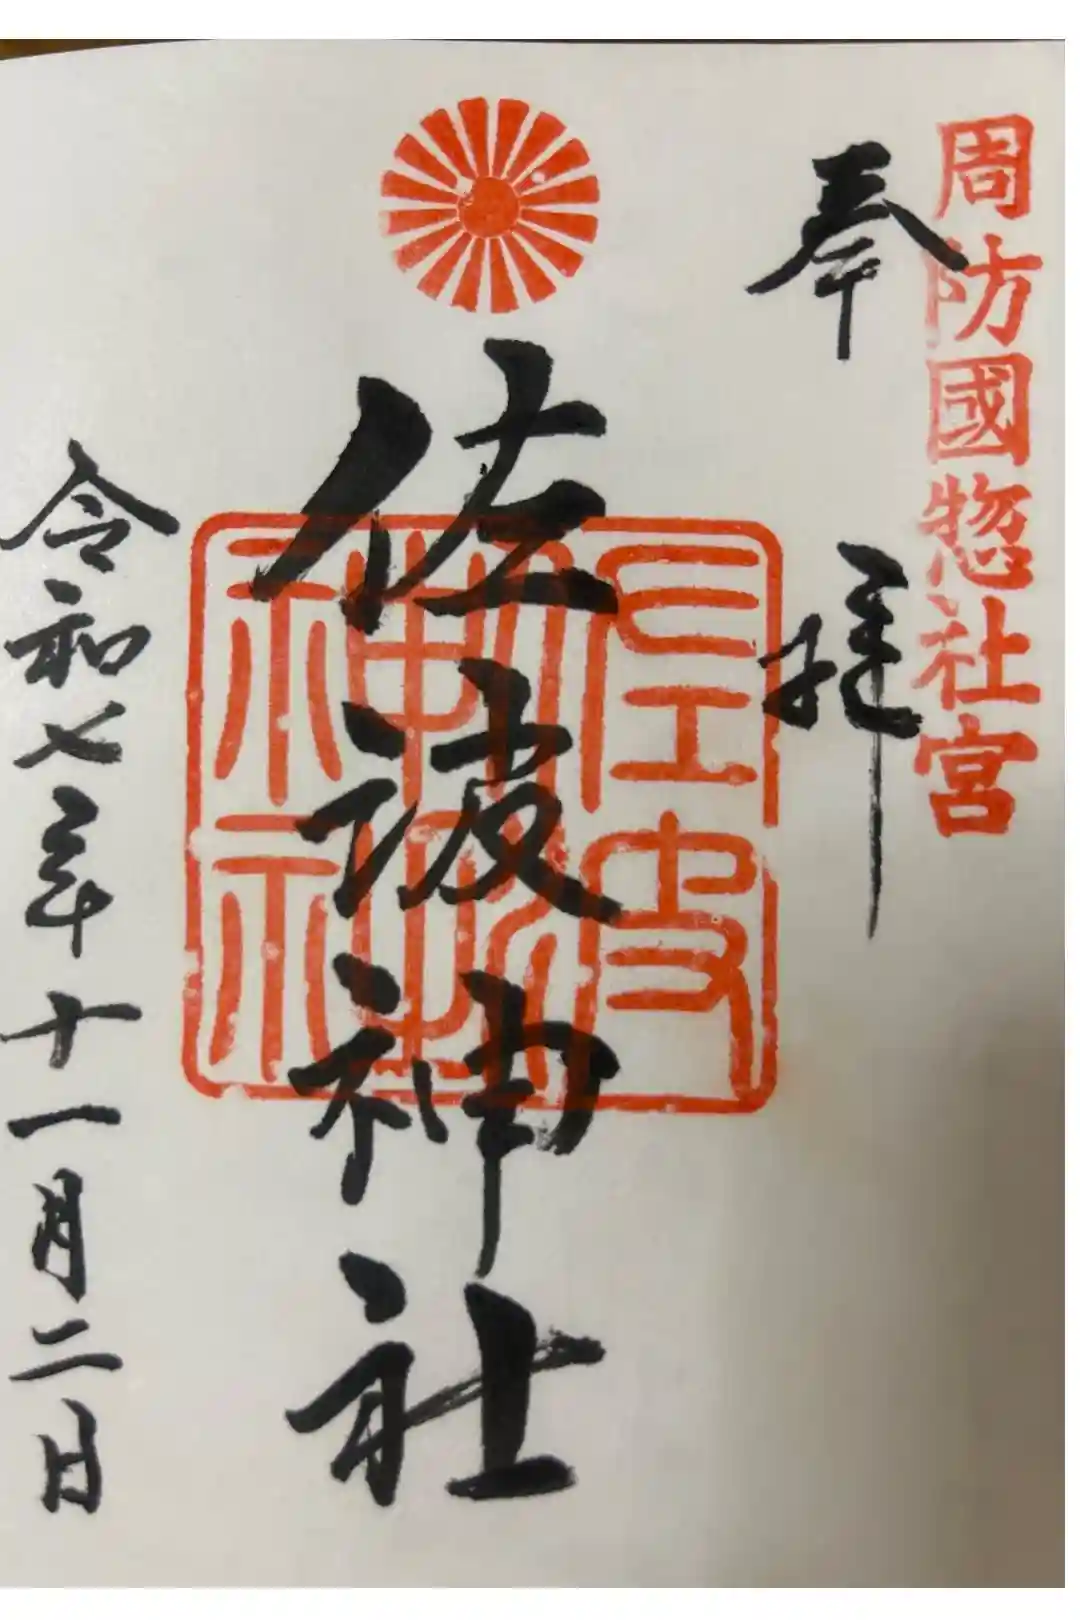 周防國惣社宮
奉拝
佐波神社
佐波神社
令和七年十一月二日